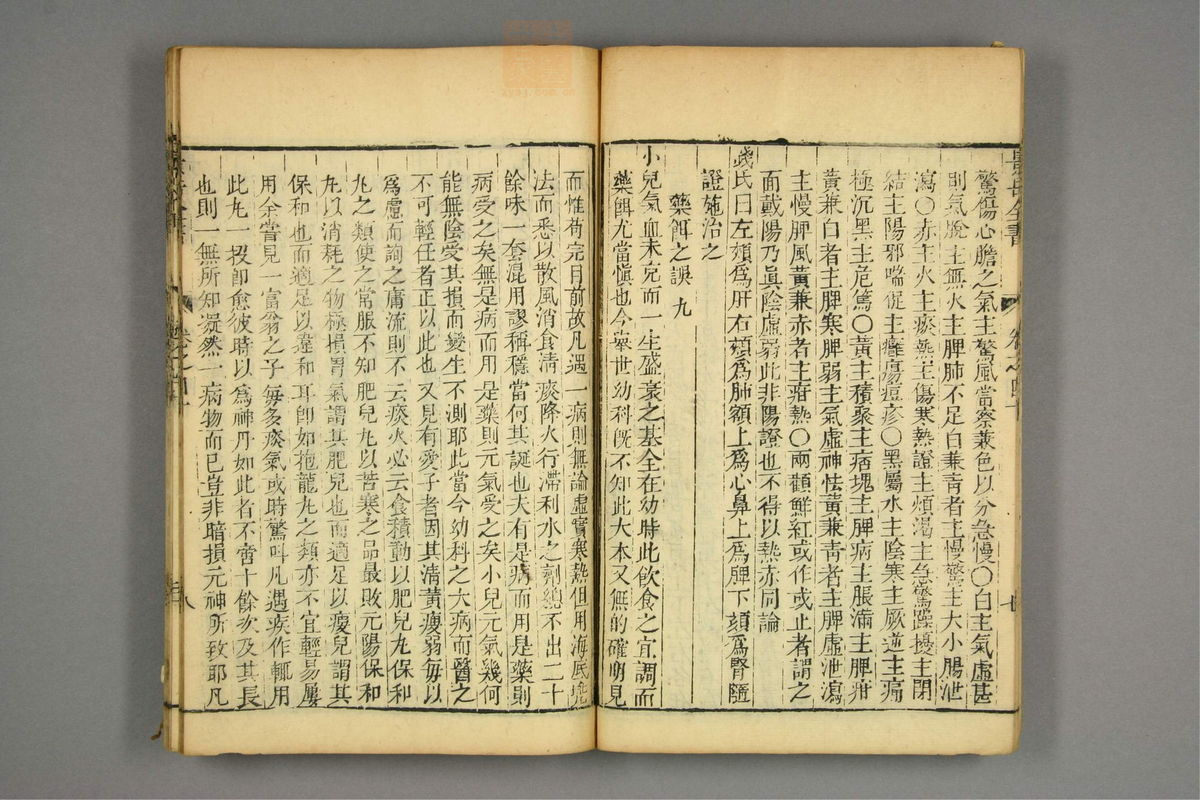 景岳全書
卷之四十
七
驚傷心膽之氣主驚風當察兼色以分急慢○白主氣虛甚
則氣脫主無火主脾肺不足白兼青者主慢驚主大小腸泄
瀉○赤主火主痰熱主傷寒熱證主煩渴主急驚躁擾主閉
結主陽邪喘促主癰瘍痘疹○黑屬水主陰寒主厥逆主痛
極沉黑主危篤○黃主積聚主痞塊主脾病主脹滿主脾疳
黃兼白者主脾寒脾弱主氣虛神怯黃兼青者主脾虛泄瀉
主慢脾風黃兼赤者主疳熱○兩顴鮮紅或作或止者謂之
面戴陽乃眞陰虛弱此非陽證也不得以熱赤同論
錢氏曰左頰爲肝右頰爲肺額上爲心鼻上爲脾下頦爲腎隨
證施治之
藥餌之誤九
小兒氣血未充而一生盛衰之基全在幼時此飲食之宜調而
藥餌尤當愼也今舉世幼科旣不知此大本又無的確明見
而惟苟完目前故凡遇一病則無論虛實寒熱但用海底兠
法而悉以散風消食清痰降火行滯利水之劑總不出二十
餘味一套混用謬稱穩當何其誕也夫有是病而用是藥則
病受之矣無是病而用是藥則元氣受之矣小兒元氣幾何
能無陰受其損而變生不測耶此當今幼科之大病而醫之
不可輕任者正以此也又見有愛子者因其清黃瘦弱每以
爲慮而詢之庸流則不云痰火必云食積動以肥兒丸保和
丸之類使之常服不知肥兒丸以苦寒之品最敗元陽保和
丸以消耗之物極損胃氣謂其肥兒也而適足以瘦兒謂其
保和也而適足以違和耳卽如抱龍丸之類亦不宜輕易屢
用余嘗見一富翁之子每多痰氣或時驚叫凡遇疾作輒用
此丸一投卽愈彼時以爲神丹如此者不啻十餘次及其長
也則一無所知凝然一病物而已豈非暗損元神所致耶凡
卷之四十
八